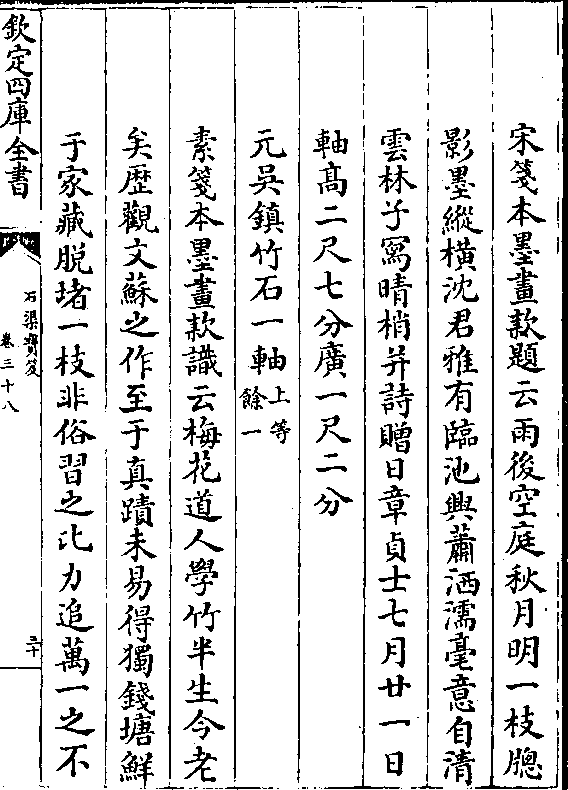 宋箋本墨畫款題云雨後空庭秋月明一枝牕
影墨縱橫沈君雅有臨池興蕭洒濡毫意自清
雲林子寫晴梢并詩贈日章貞士七月廿一日
軸高二尺七分廣一尺二分
元吳鎮竹石一軸上等餘一
素箋本墨畫款識云梅花道人學竹半生今老
矣歴觀文蘇之作至于真蹟未易得獨錢塘鮮
于家藏脱堵一枝非俗習之比力追萬一之不
欽定四庫全書
石渠寶笈
卷三十八
二十